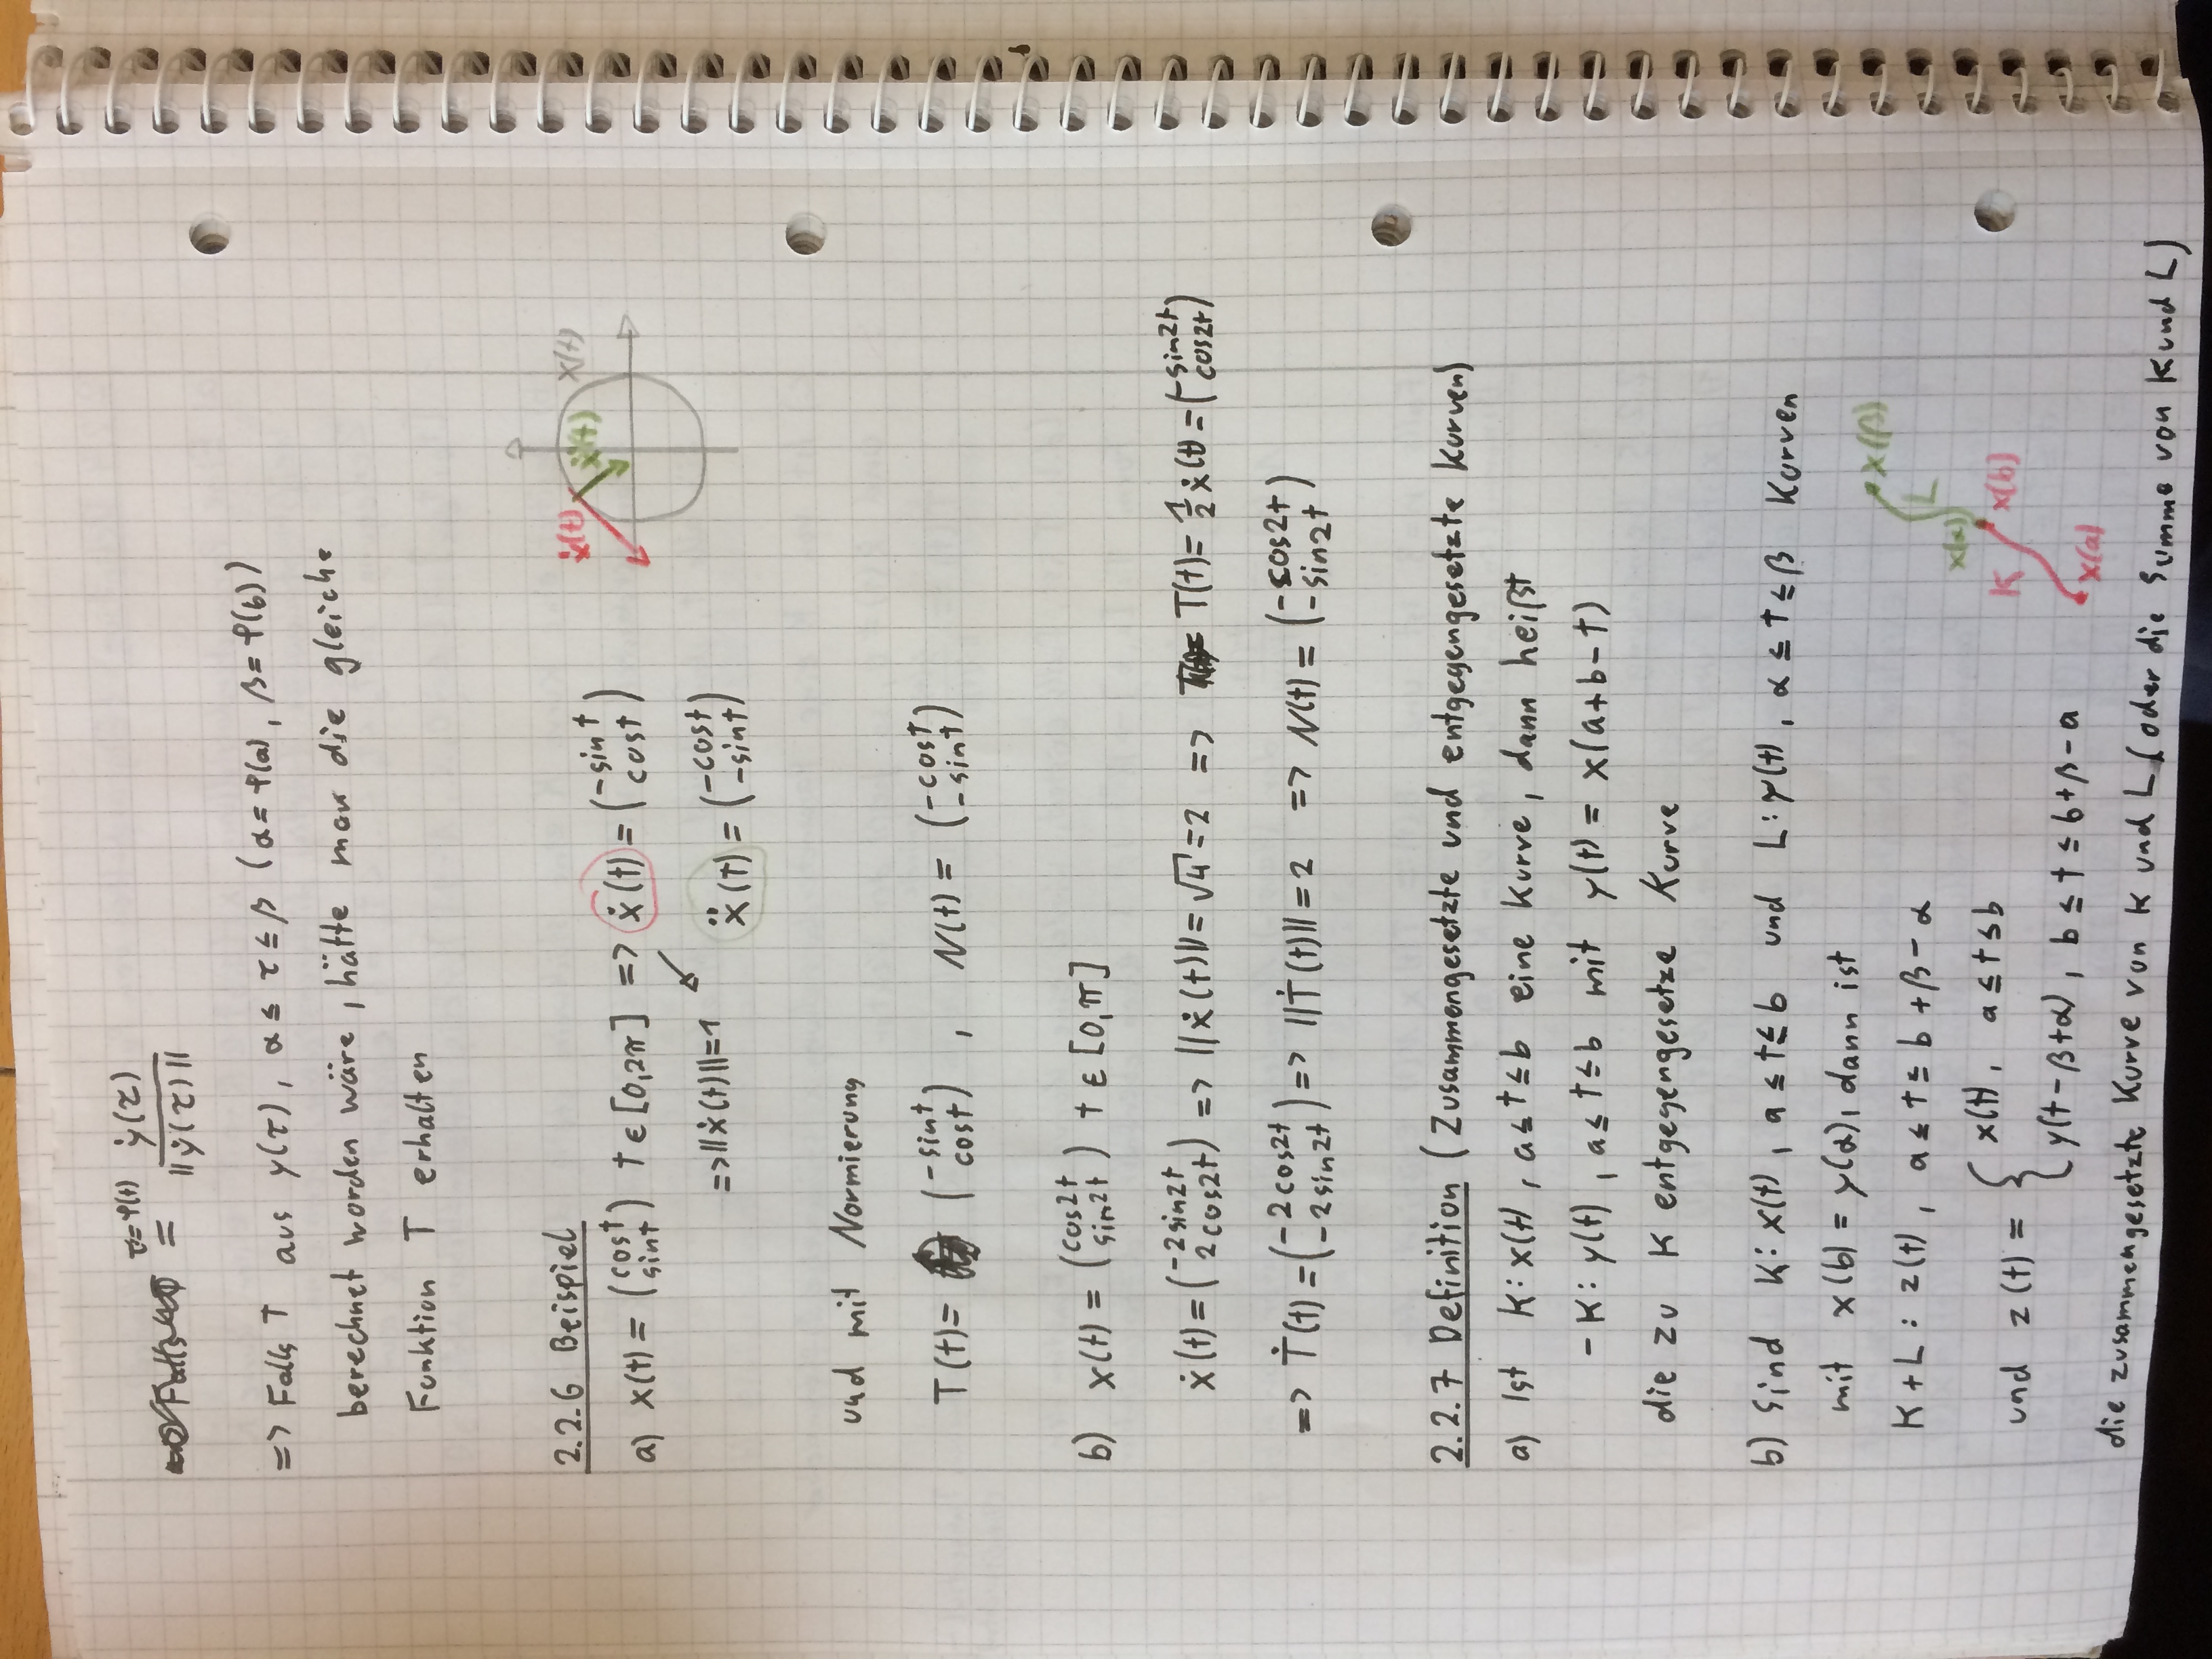 τ=φ(t)
= ẏ(τ) / ||ẏ(τ)||
=> Falls T aus y(τ), α ≤ τ ≤ β (α = φ(a), β = φ(b))
berechnet worden wäre, hätte man die gleiche
Funktion T erhalten
2.2.6 Beispiel
a) x(t) = (cost sint) t ∈ [0,2π] => ẋ(t) = (-sint cost)
ẋ(t) ẍ(t) x(t)
=> ||ẋ(t)|| = 1 ↙ ẍ(t) = (-cost -sint)
und mit Normierung
T(t) = (-sint cost) , N(t) = (-cost -sint)
b) x(t) = (cos2t sin2t) t ∈ [0,π]
ẋ(t) = (-2sin2t 2cos2t) => ||ẋ(t)|| = √4 = 2 => T(t) = 1/2 ẋ(t) = (-sin2t cos2t)
=> Ṫ(t) = (-2cos2t -2sin2t) => ||Ṫ(t)|| = 2 => N(t) = (-cos2t -sin2t)
2.2.7 Definition (Zusammengesetzte und entgegengesetzte Kurven)
a) Ist K: x(t), a ≤ t ≤ b eine Kurve, dann heißt
-K: y(t), a ≤ t ≤ b mit y(t) = x(a+b-t)
die zu K entgegengesetze Kurve
b) Sind K: x(t), a ≤ t ≤ b und L: y(t), α ≤ t ≤ β Kurven
mit x(b) = y(α), dann ist
K+L: z(t), a ≤ t ≤ b+β-α
und z(t) = { x(t), a ≤ t ≤ b
y(t-β+α), b ≤ t ≤ b+β-a
x(β)
L
x(α)
K x(b)
x(a)
die zusammengesetzte Kurve von K und L (oder die Summe von K und L)